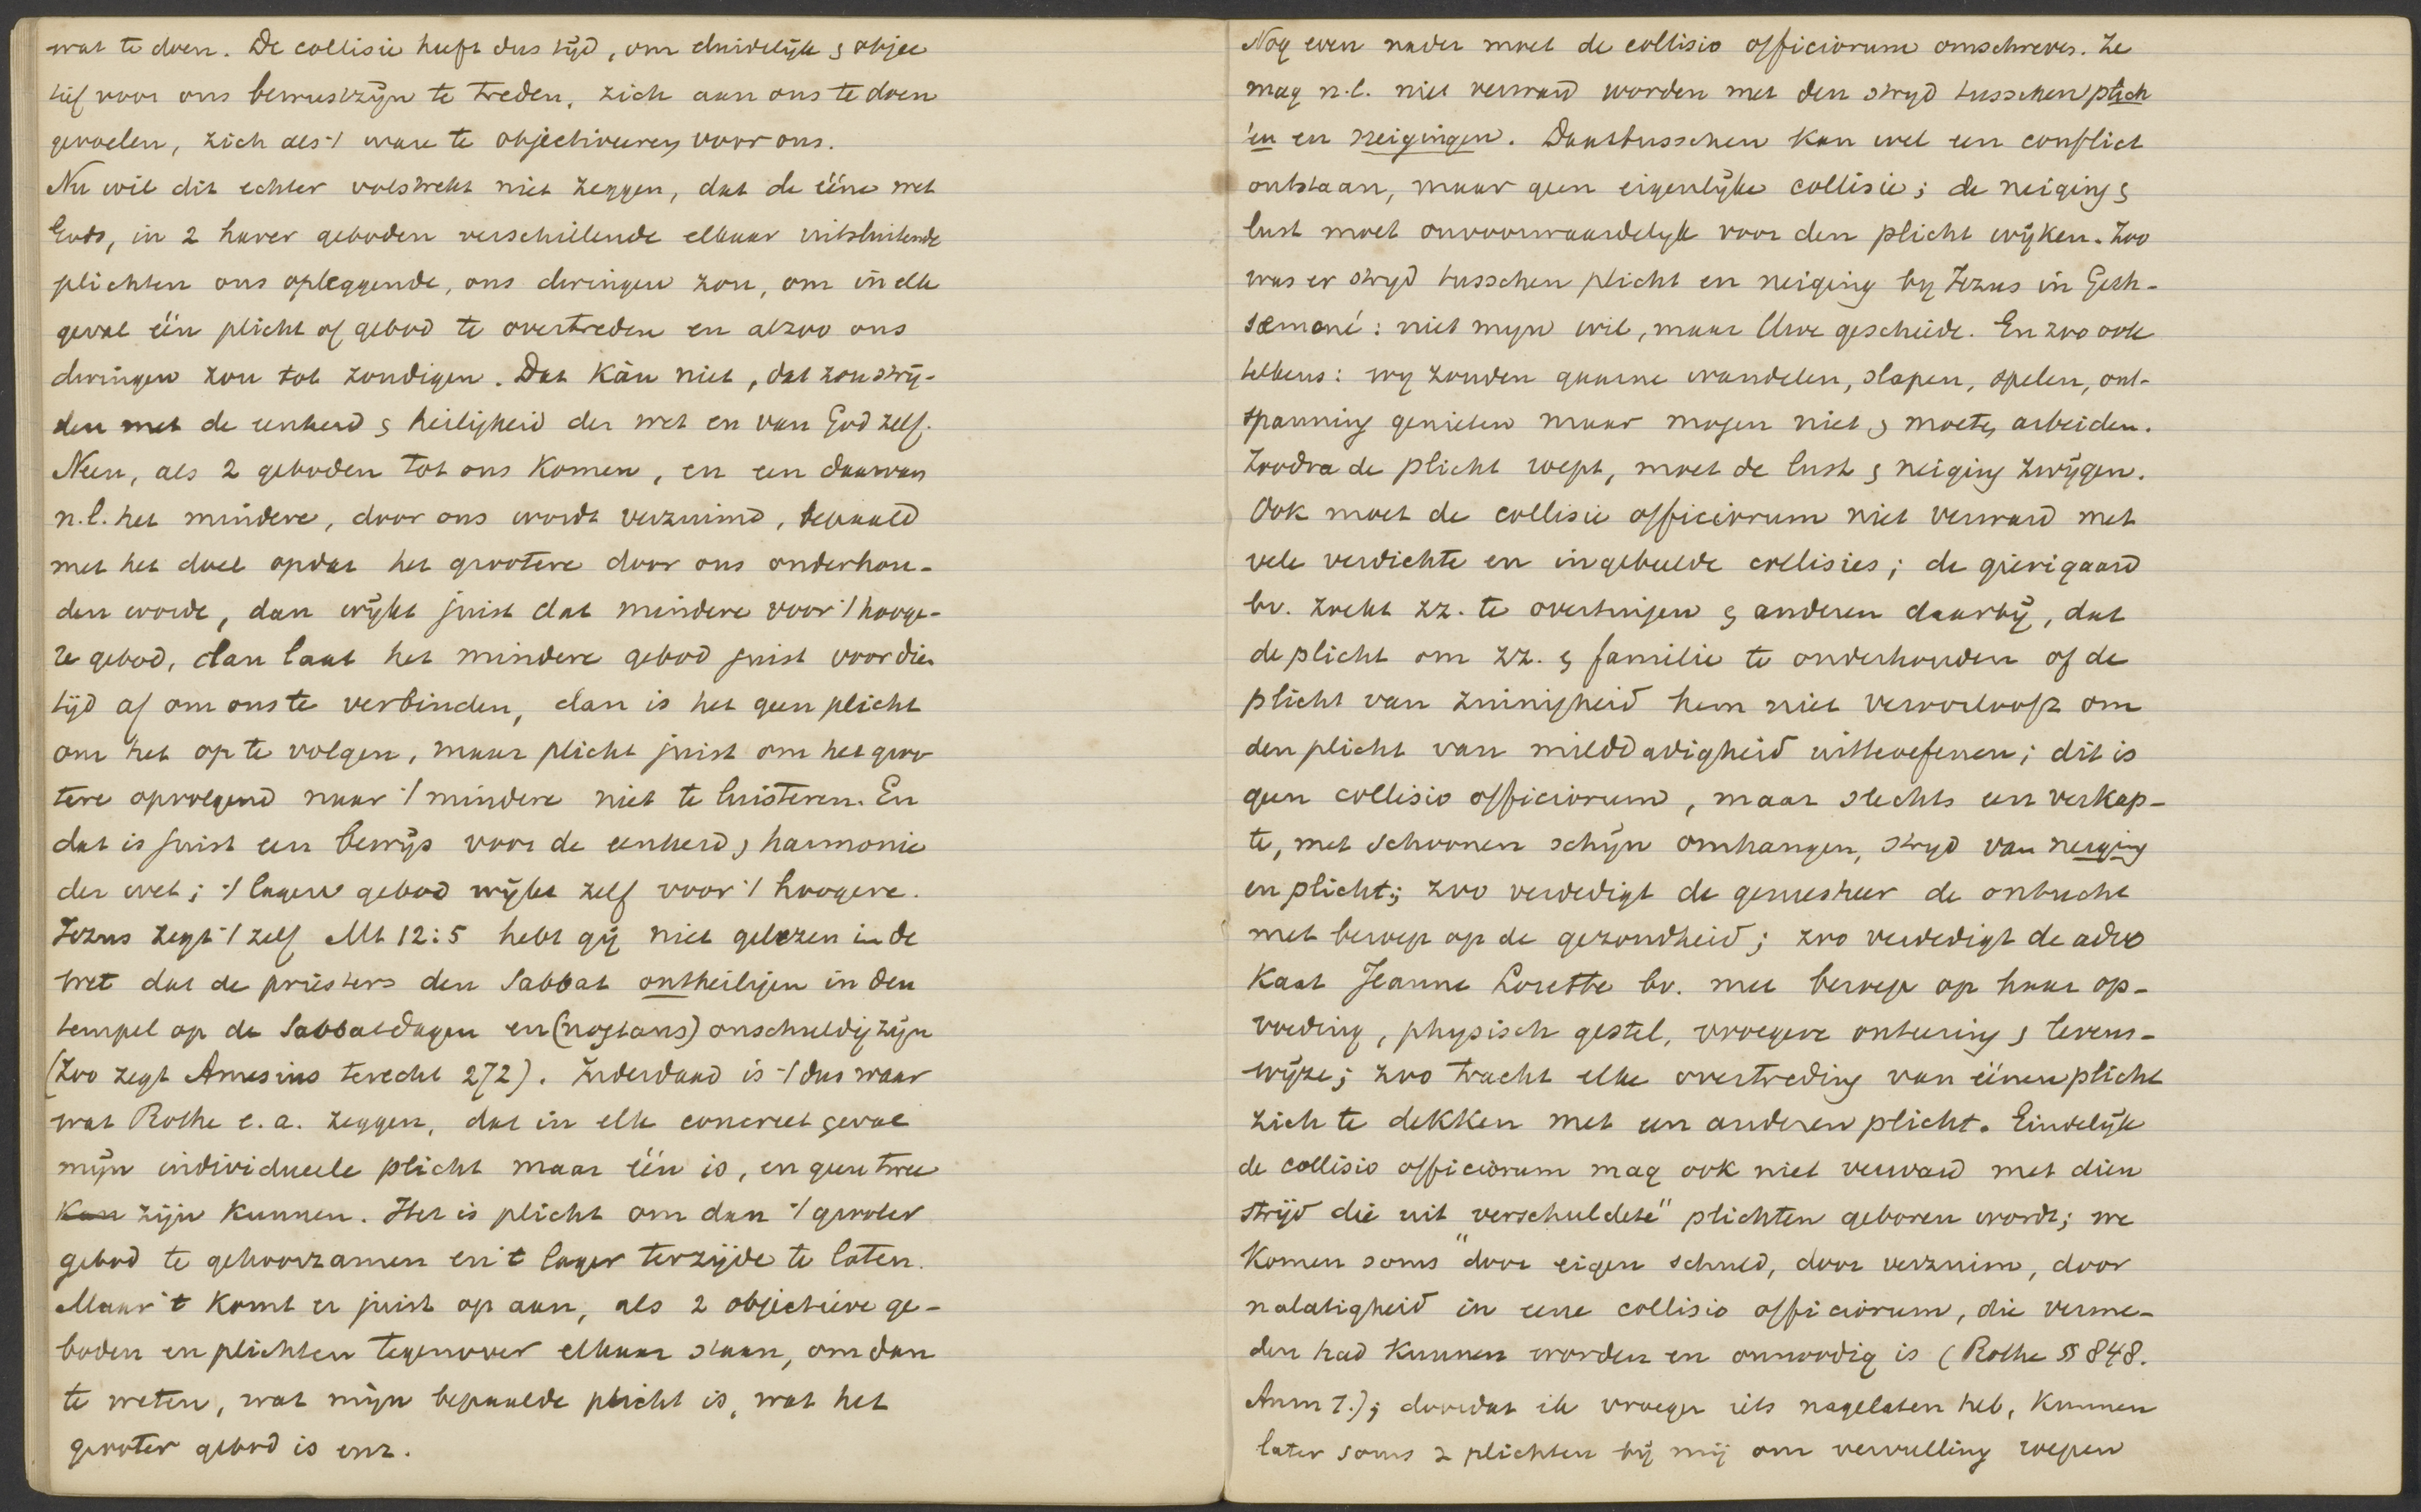 wat te doen. De collisie heeft dus tijd, om duidelijk & objec
tief voor ons bewustzijn te treden, zich aan ons te doen
gevoelen, zich als 't ware te objectiveeren voor ons.
Nu wil dit echter volstrekt niet zeggen, dat de ééne wet
Gods, in 2 harer geboden verschillende elkaar uitsluitende
plichten ons opleggende, ons dwingen zou, om in elk
geval één plicht of gebod te overtreden en alzoo ons
dwingen zou tot zondigen. Dat kàn niet, dat zou strij-
den met de eenheid & heiligheid der wet en van God zelf.
Neen, als 2 geboden tot ons komen, en een daarvan
n.l. het mindere, door ons wordt verzuimd, bepaald
met het doel opdat het grootere door ons onderhou-
den worde, dan wijkt juist dat mindere voor 't hooge-
re gebod, dan laat het mindere gebod juist voor dien
tijd af om ons te verbinden, dan is het geen plicht
om het op te volgen, maar plicht juist om het groo
tere opvolgend naar 't mindere niet te luisteren. En
dat is juist een bewijs voor de eenheid & harmonie
der wet; 't lagere gebod wijkt zelf voor 't hoogere.
Jezus zegt 't zelf Mt 12:5 hebt gij niet gelezen in de
wet dat de priesters den Sabbat ontheiligen in den
tempel op de Sabbatdagen en (nogtans) onschuldig zijn
(Zoo zegt Amesius terecht 272). Inderdaad is 't dus waar
wat Rothe e.a. zeggen, dat in elk concreet geval
mijn individueele plicht maar één is, en geen twee
kan zijn kunnen. Het is plicht om dan 't grooter
gebod te gehoorzamen en 't lager terzijde te laten.
Maar 't komt er juist op aan, als 2 objectieve ge-
boden en plichten tegenover elkaar staan, om dan
te weten, wat mijn bepaalde plicht is, wat het
grooter gebod is enz.
Nog even nader moet de collisio officiorum omschreven. Ze
mag n.l. niet verward worden met den strijd tusschen plich
'en en neigingen. Daartusschen kan wel een conflict
ontstaan, maar geen eigenlijke collisie; de neiging &
lust moet onvoorwaardelijk voor den plicht wijken. Zoo
was er strijd tusschen plicht en neiging bij Jezus in Geth-
semané: niet mijn wil, maar Uwe geschiede. En zoo ook
telkens: wij zouden gaarne wandelen, slapen, spelen, ont-
spanning genieten maar mogen niet & moeten arbeiden.
Zoodra de plicht roept, moet de lust & neiging zwijgen.
Ook moet de collisie officiorum niet verward met
vele verdichte en ingebeelde collisies; de gierigaard
bv. zoekt zz. te overtuigen & anderen daarbij, dat
de plicht om zz. & familie te onderhouden of de
plicht van zuinigheid hem niet veroorlooft om
den plicht van milddadigheid uitteoefenen; dit is
geen collisio officiorum, maar slechts een verkap-
te, met schoonen schijn omhangen, strijd van neiging
en plicht; zoo verdedigt de geneesheer de ontucht
met beroep op de gezondheid; zoo verdedigt de advo
kaat Jeanne Lorette bv. met beroep op haar op-
voeding, physisch gestel, vroegere onteering & levens-
wijze; zoo tracht elke overtreding van éénen plicht
zich te dekken met een anderen plicht. Eindelijk
de collisio officiorum mag ook niet verward met dien
strijd die uit "verschuldete" plichten geboren wordt; we
komen soms door eigen schuld, door verzuim, door
nalatigheid in eene collisio officiorum, die verme-
den had kunnen worden en onnoodig is (Rothe §§ 848.
Anm 1.); doordat ik vroeger iets nagelaten heb, kunnen
later soms 2 plichten bij mij om vervulling roepen